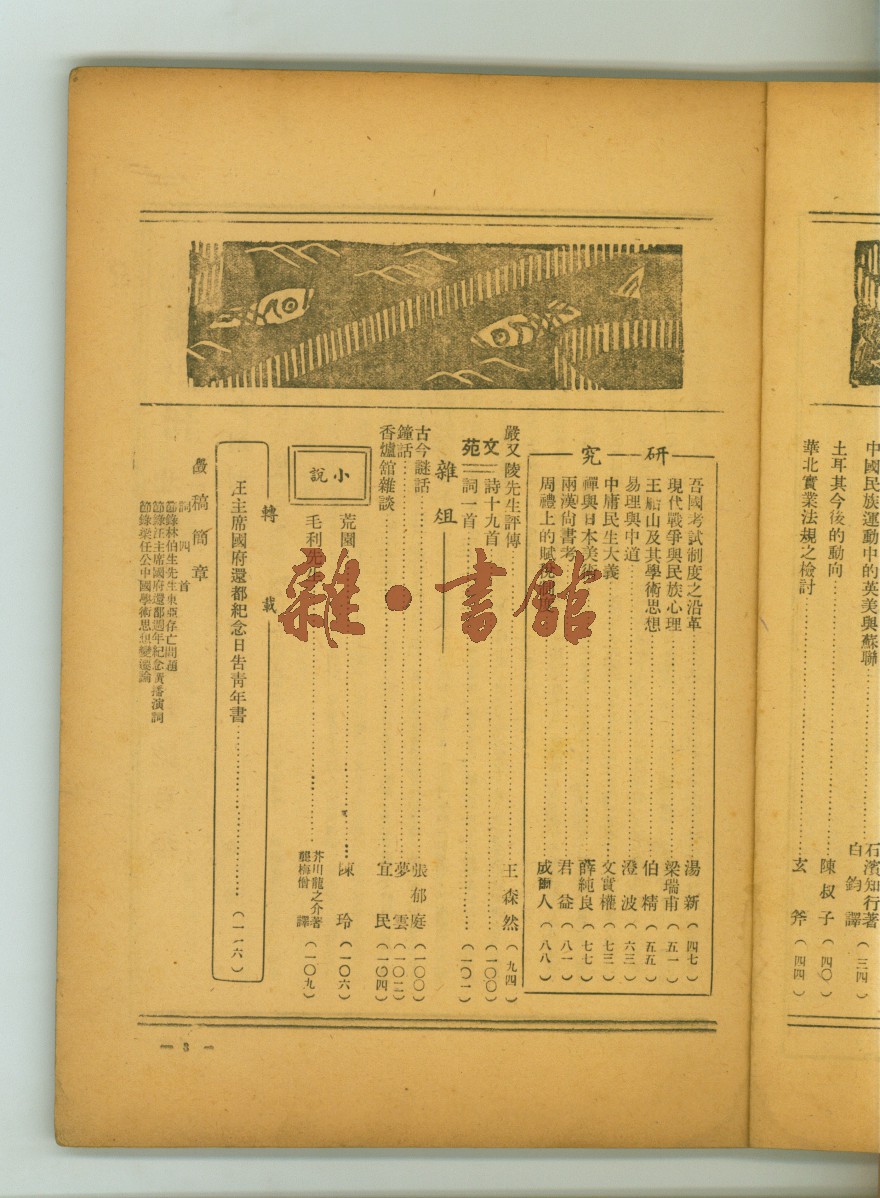 中國民族運動中的英美與蘇聯……石濱知行著 白鈞譯(三四)
土耳其今後的動向……陳叔子(四〇)
華北實業法規之檢討……玄斧(四四)
研究
吾國考試制度之沿革……湯新(四七)
現代戰爭與民族心理……梁瑞甫(五一)
王船山及其學術思想……伯精(五五)
易理與中道……澄波(六三)
中庸民生大義……文實權(七三)
禪與日本美術……薛純良(七七)
兩漢尚書考……君益(八一)
周禮上的賦稅……成爾人(八八)
嚴又陵先生評傳……王森然(九四)
文苑
詩十九首……(一〇〇)
詞一首……(一〇一)
雜俎
古今謎話……張郁庭(一〇〇)
鐘話……夢雲(一〇二)
香爐舘雜談……宜民(一〇四)
小說
荒園……陳玲(一〇六)
毛利先生……芥川龍之介著 龔梅僧譯(一〇九)
轉載
汪主席國府還都紀念日告青年書……(一一六)
徵稿簡章
詞四首
節錄林伯生先生東亞存亡問題
節錄汪主席國府還都週年紀念廣播演詞
節錄梁任公中國學術思想變遷論
一 3 一
雜·書舘